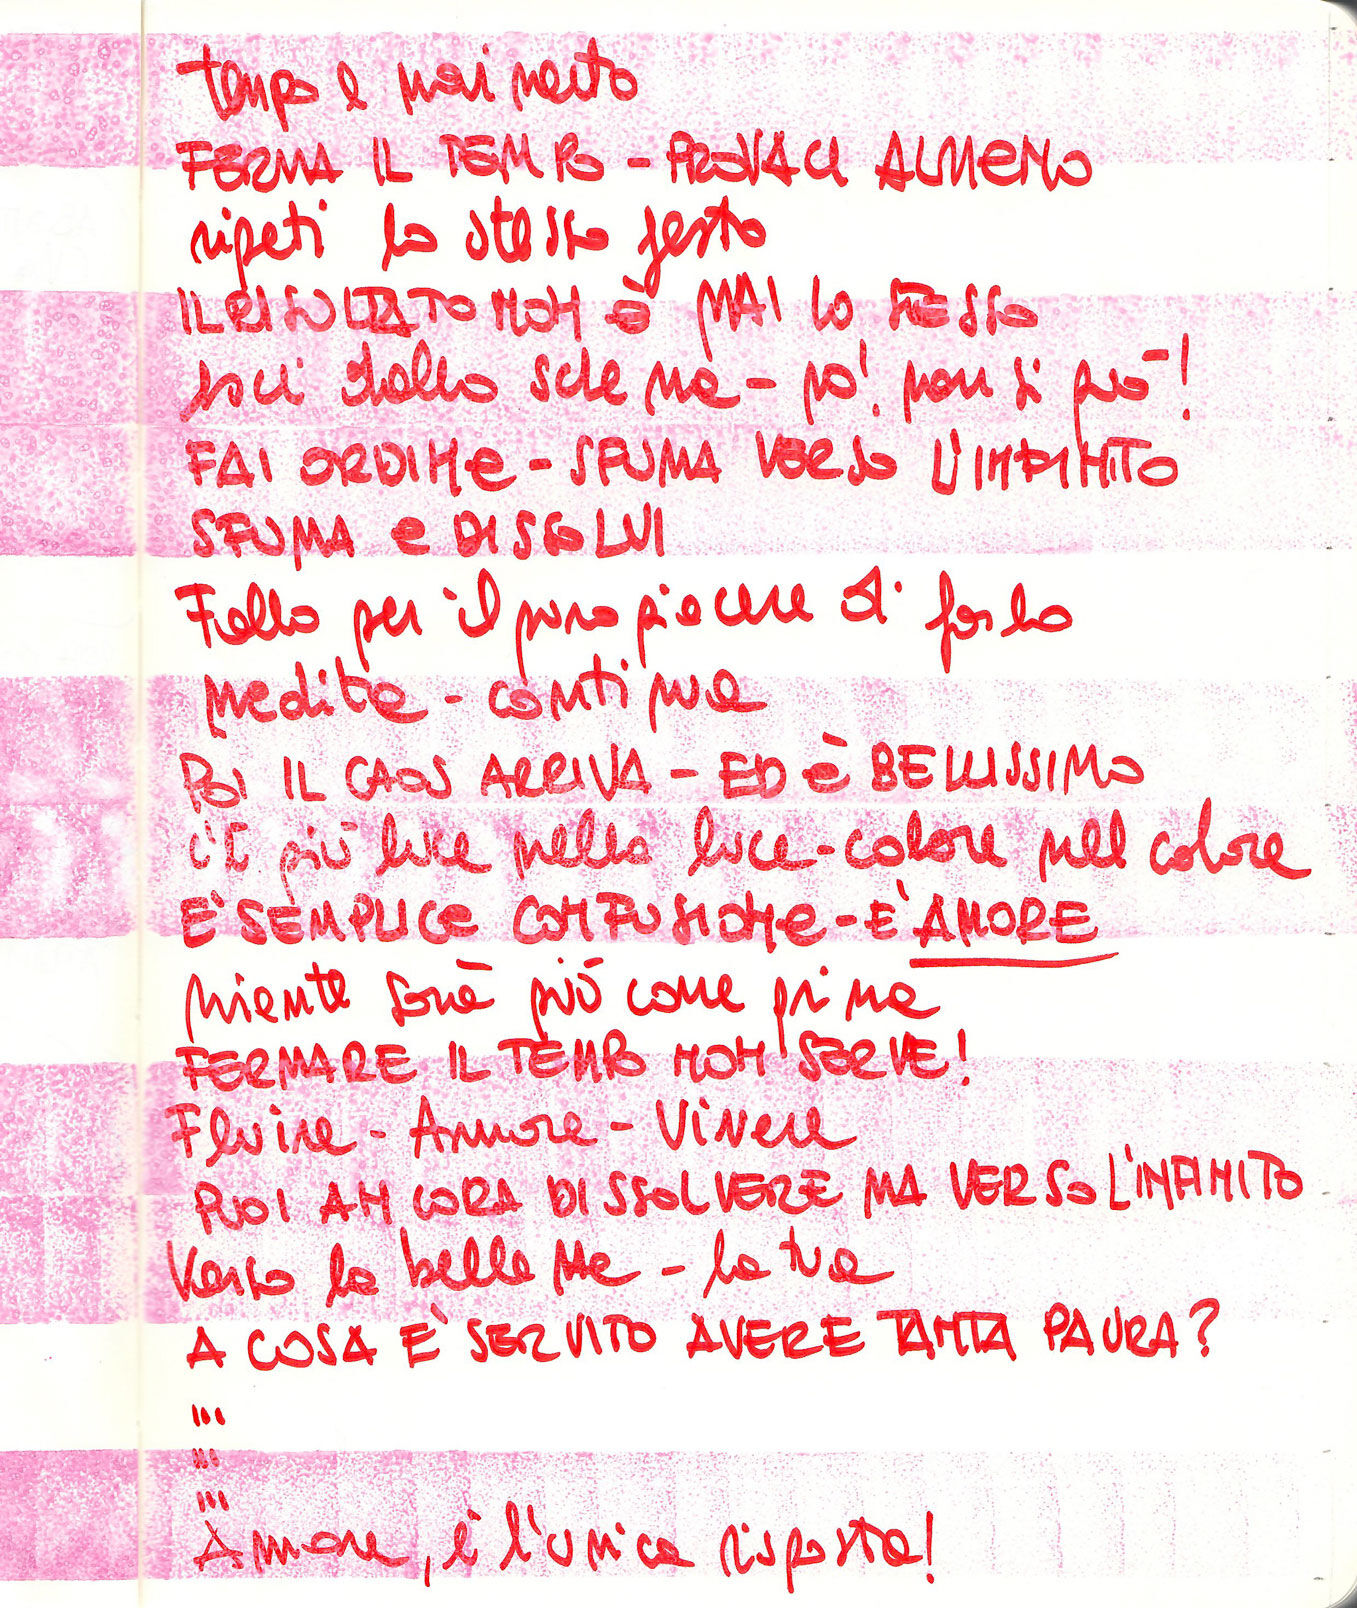 tempo e
FERMA IL TEMPO - PROVACI ALMENO
ripeti lo stesso gesto
IL RISULTATO NON È MAI LO STESSO
esci dallo schema - no! non si può!
FAI ORDINE - SFUMA VERSO L'INFINITO
SFUMA e DISSOLVI
Fallo per il puro piacere di farlo
medita - continua
POI IL CAOS ARRIVA - ED È BELLISSIMO
c'è più luce nella luce - colore nel colore
E' SEMPLICE CONFUSIONE - E' AMORE
niente sarà più come prima
FERMARE IL TEMPO NON SERVE!
Fluire - Amore - Vivere
PUOI ANCORA DISSOLVERE MA VERSO L'INFINITO
Verso la bellezza - la tua
A COSA E' SERVITO AVERE TANTA PAURA?
...
...
...
Amore, è l'unica risposta!